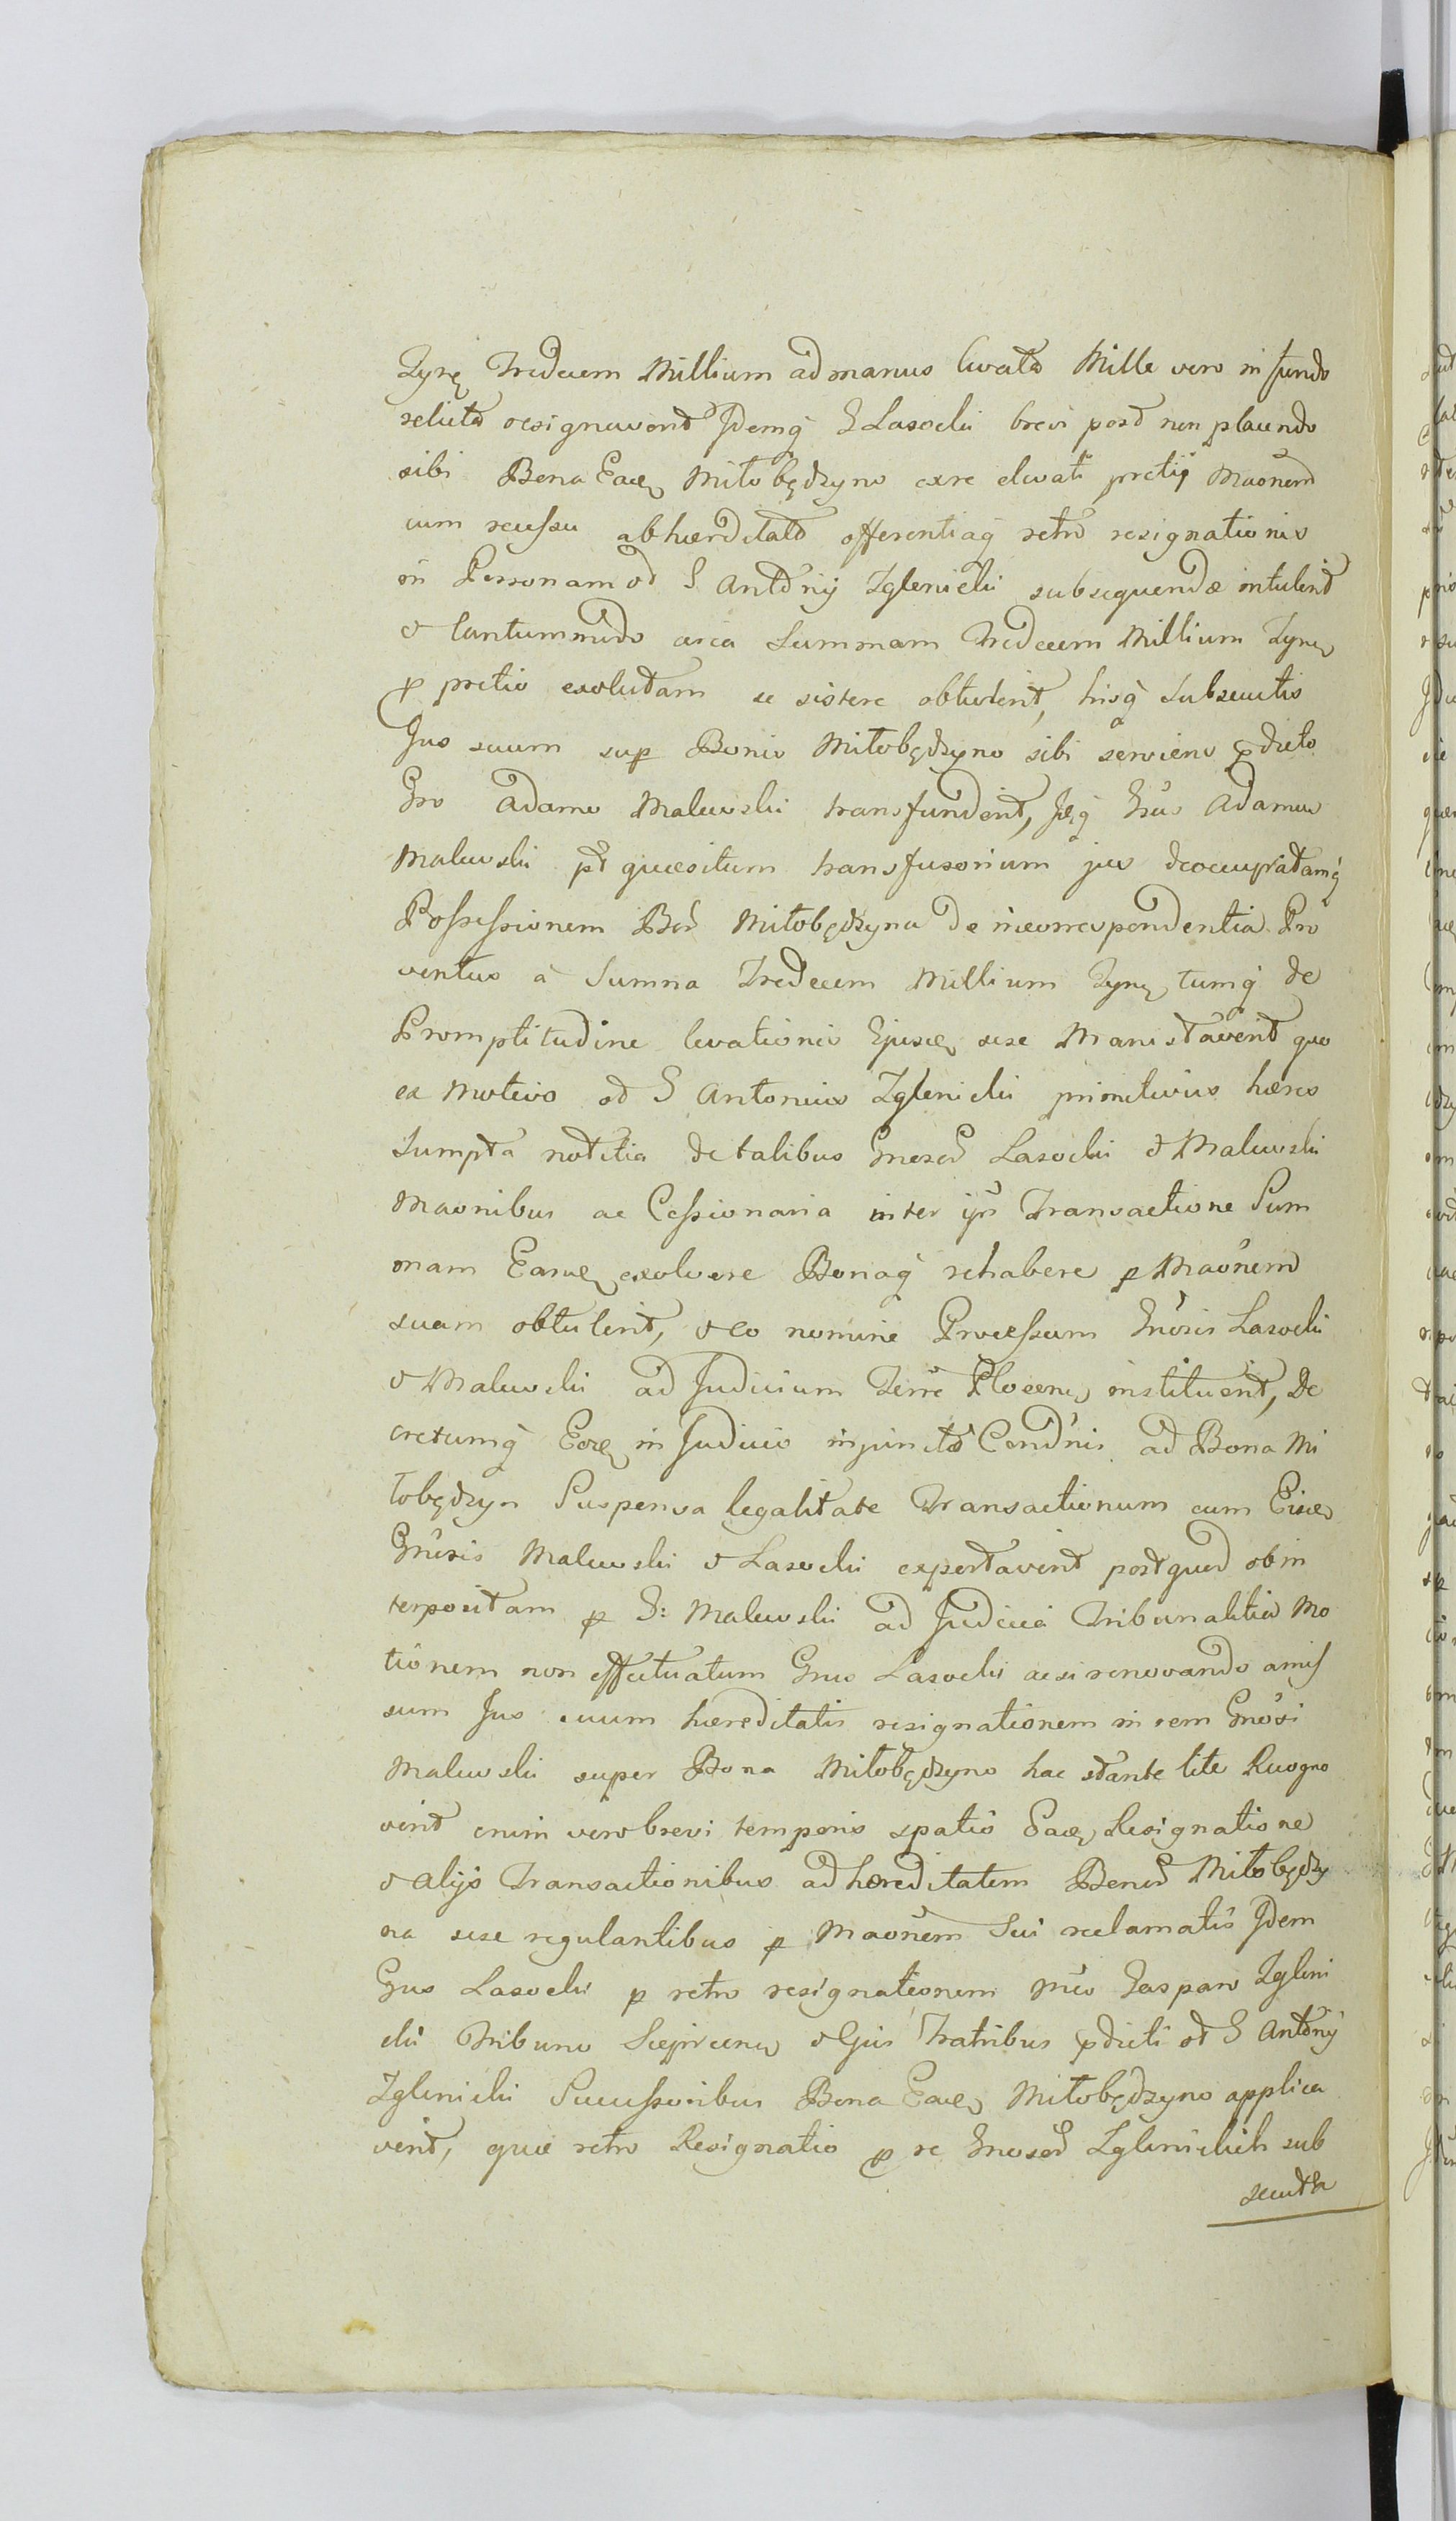 Zyn̄ę Tredecem Millium ad manus levatā Mille vero in fundo
relictā resignaverit Idemq̄ G Lasocki brevi post non placendo
sibi Bona Eadę Miłobędzyno exre elevati pretij Maōnem
cum recessu ab hæreditatē offerentiaq̄ retrō resignationis
in Personam od G Antōnij Zglenicki subsequendæ intulerit
& tantummodo circa Summam Tredecem Millium Zynę
p pretio exolutam se sistere obtulerit, hisq̄ subsecutis
Jus suum sup Bonis Miłobędzyno sibi serviens p̄dicto
Gro Adamo Malewski transfuderit, Isq̄ Grūs Adamus
Malewski pt̄ quæsitum transfusorium jus deoccupatamq̄
Possessionem Bor̄ Miłobędzyna de incorrespondentia Pro
ventus à Summa Tredecem Millium Zynę tumq̄ de
Promptitudine levationis Ejusdę sese Manistāverit quo
ex motivo od G Antonius Zglenicki primitivus hæres
Sumptā notitia de talibus Gnerō Lasocki & Malewski
Maōnibus ac Cessionaria inter ijs̄ Transactione Sum
mam Eamdę exolvere Bonaq̄ rehabere p Maōnem
suam obtulerit, & eo nomine Processum Gnōsis Lasocki
& Malewski ad Judicium Terrē Plocenę instituerit, De
cretumq̄ Eodę in Judicio inpunctō Condn̄is ad Bona Mi
łobędzyn Suspensa legalitate Transactionum cum Eisdę
Gnōsis Malewski & Lasocki exportaverit postquod ob in
terpositam p G: Malewski ad Judicia Tribunalitia Mo
tionem non effectuatum Gnus Lasocki acsi renovando amis
sum Jus suum hæreditatis resignationem in rem Gnōsi
Malewski super Bona Miłobędzyno hac stante lite Recogno
verit enim vero brevi temporis spatiō Eadę Resignatione
& alijs Transactionibus ad hæreditatem Bonorō Miłobędzy
na sese regulantibus p Maōnem Sui reclamatis Idem
Gnus Lasocki p retro resignationem Mco Gaspare Zgleni
cki Tribuno Sieprcenę & Ejus Fratribus p̄dicti od G Antōnij
Zglenicki Successoribus Bona Eadę Miłobędzyno applica
verit, quæ retro Resignatio p re Gnosorō Zglenickich sub
secuta